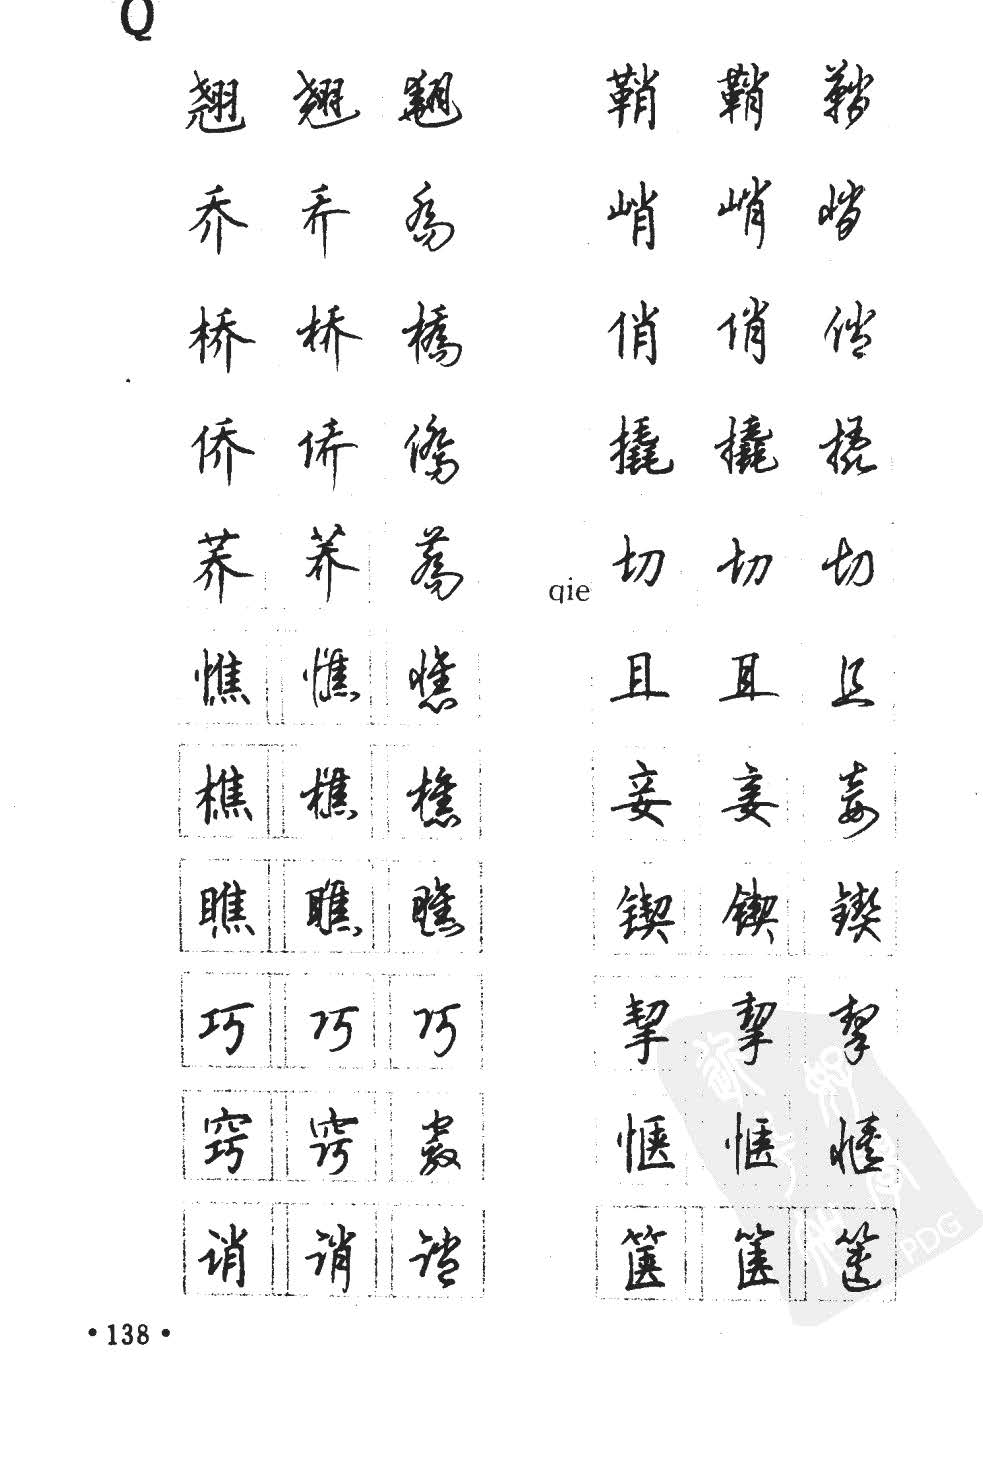 Q
翘 翘 翘
乔 乔 喬
桥 桥 橋
侨 侨 僑
荞 荞 蕎
憔 憔 憔
樵 樵 樵
瞧 瞧 瞧
巧 巧 巧
窍 窍 竅
诮 诮 诮
鞘 鞘 鞘
峭 峭 峭
俏 俏 俏
撬 撬 撬
qie
切 切 切
且 且 且
妾 妾 妾
锲 锲 鍥
挈 挈 挈
惬 惬 愜
箧 箧 篋
·138·
PDG